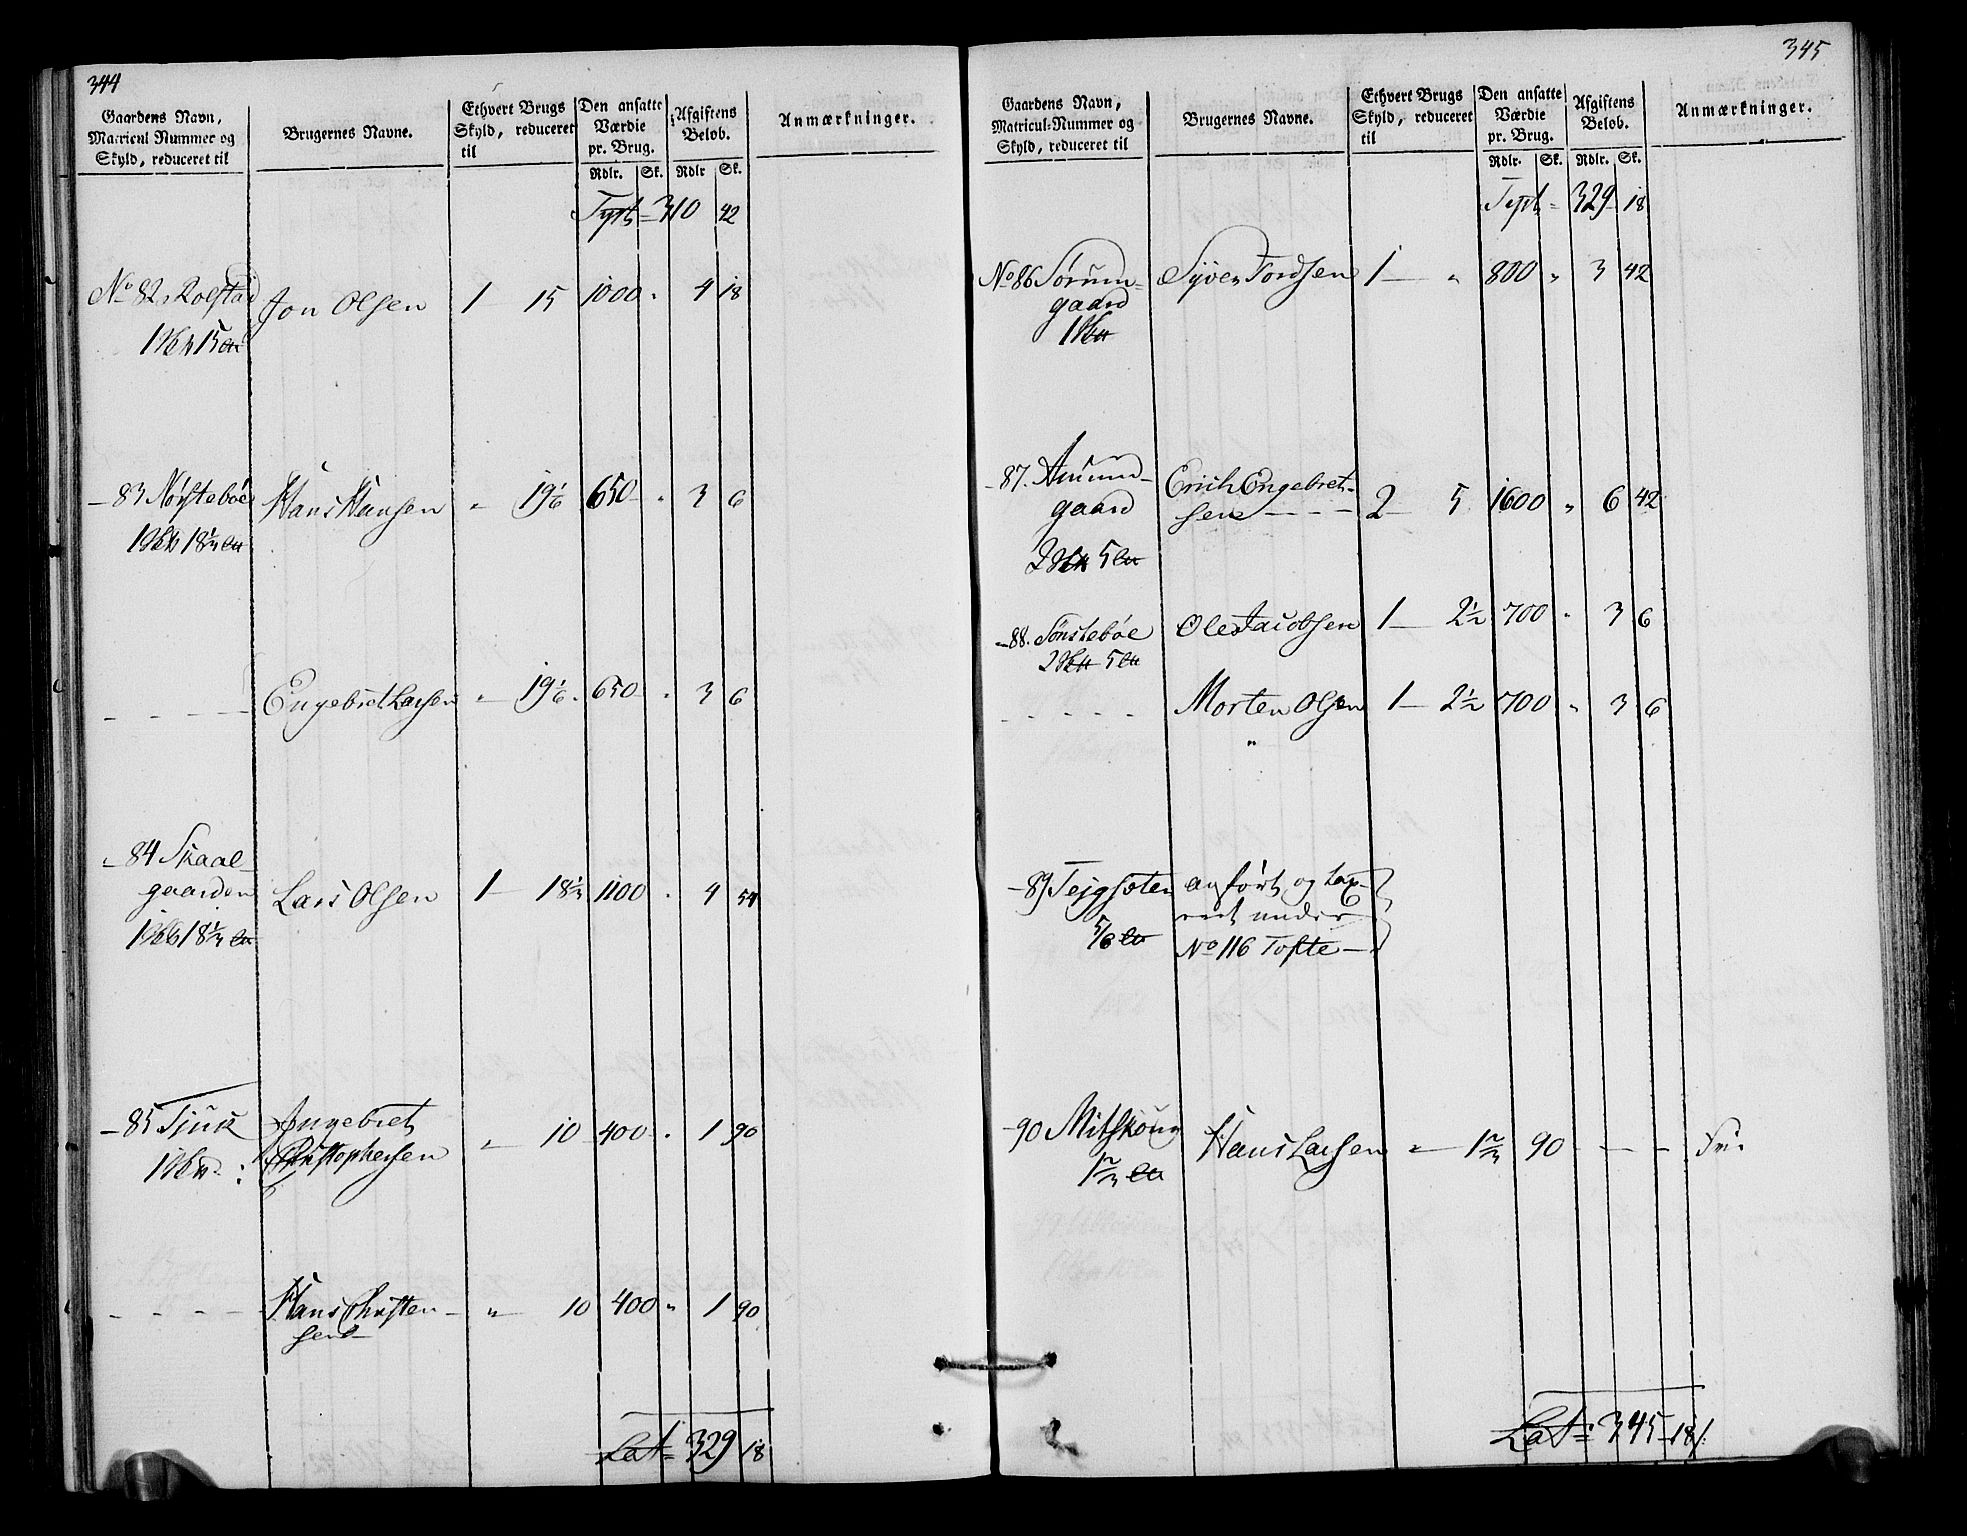 344
Gaardens Navn, Matricul Nummer og Skyld, reduceret til | Brugernes Navne. | Ethvert Brugs Skyld, reduceret til | Den ansatte Værdie pr. Brug. | Afgiftens Beløb. | Anmærkninger.
Rdlr. Sk. Rdlr Sk.
Trpt = 310 42
No 82 Rolstad Jon Olsen 1 15 1000 " 4 18
15
- 83 Nørstebøe Hans Hansen " 19 1/6 650 " 3 6
18 1/3
- - - - Engebret Larsen " 19 1/6 650 " 3 6
- 84 Skaal-
gaarden Lars Olsen 1 - 18 1/3 1100 " 4 54
18 1/3
- 85 Ingebret
Christophersen " - 10 400 " 1 90
- - - - Hans Christen-
sen " - 10 400 " 1 90
Lat = 329 18
345
Gaardens Navn, Matricul-Nummer og Skyld, reduceret til | Brugernes Navne. | Ethvert Brugs Skyld, reduceret til | Den ansatte Værdie pr. Brug. | Afgiftens Beløb. | Anmærkninger.
Rdlr. Sk. Rdlr. Sk.
Trpt = 329 18
No 86 Sørum-
gaard Syver Tordsen 1 - " 800 " 3 42
- 87. Amund- Erich Engebret-
gaard sen - - - - 2 5 1600 " 6 42
2 5
- 88. Sønstebøe Ole Jacobsen 1 - 2 1/2 700 " 3 6
2 5
- - - - - Morten Olsen 1 - 2 1/2 700 " 3 6
- 89 anført og tax-
5/6 eret under
No 116 Tofte -
- 90 Hans Larsen " 1 2/3 90 - - - Frie
1 2/3
Lat = 345 18